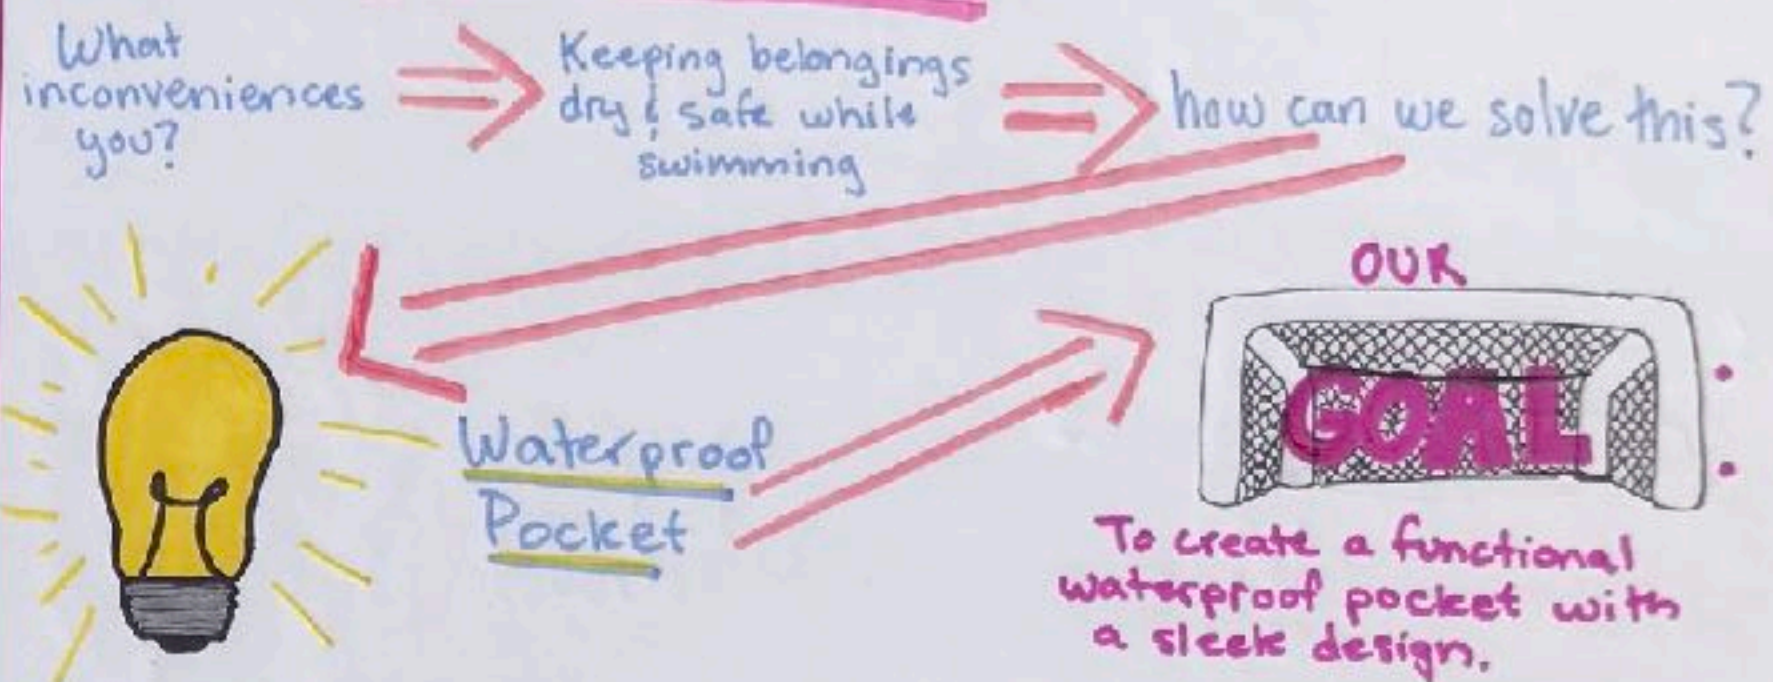 What
inconveniences
you?
Keeping belongings
dry & safe while
swimming
how can we solve this?
Waterproof
Pocket
OUR
GOAL:
To create a functional
waterproof pocket with
a sleek design.